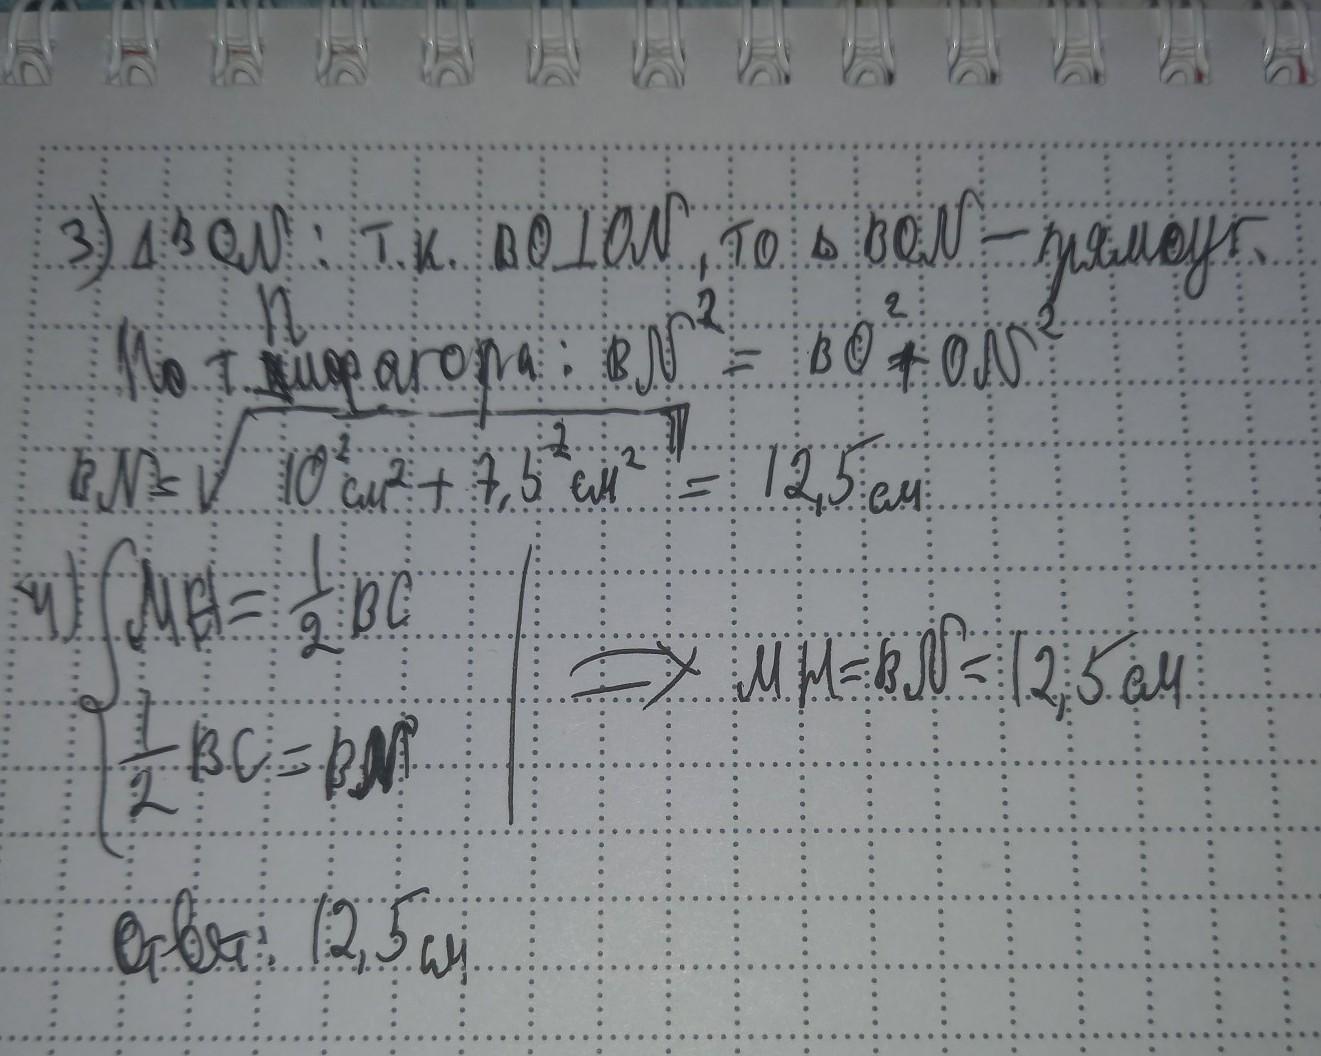 3) Δ BON: т.к. BO⊥ON, то Δ BON – прямоуг.
По т. Пифагора: BN² = BO² + ON²
BN = √(10² см² + 7,5² см²) = 12,5 см
4) { MH = 1/2 BC
1/2 BC = BN | ⇒ MH = BN = 12,5 см
Ответ: 12,5 см